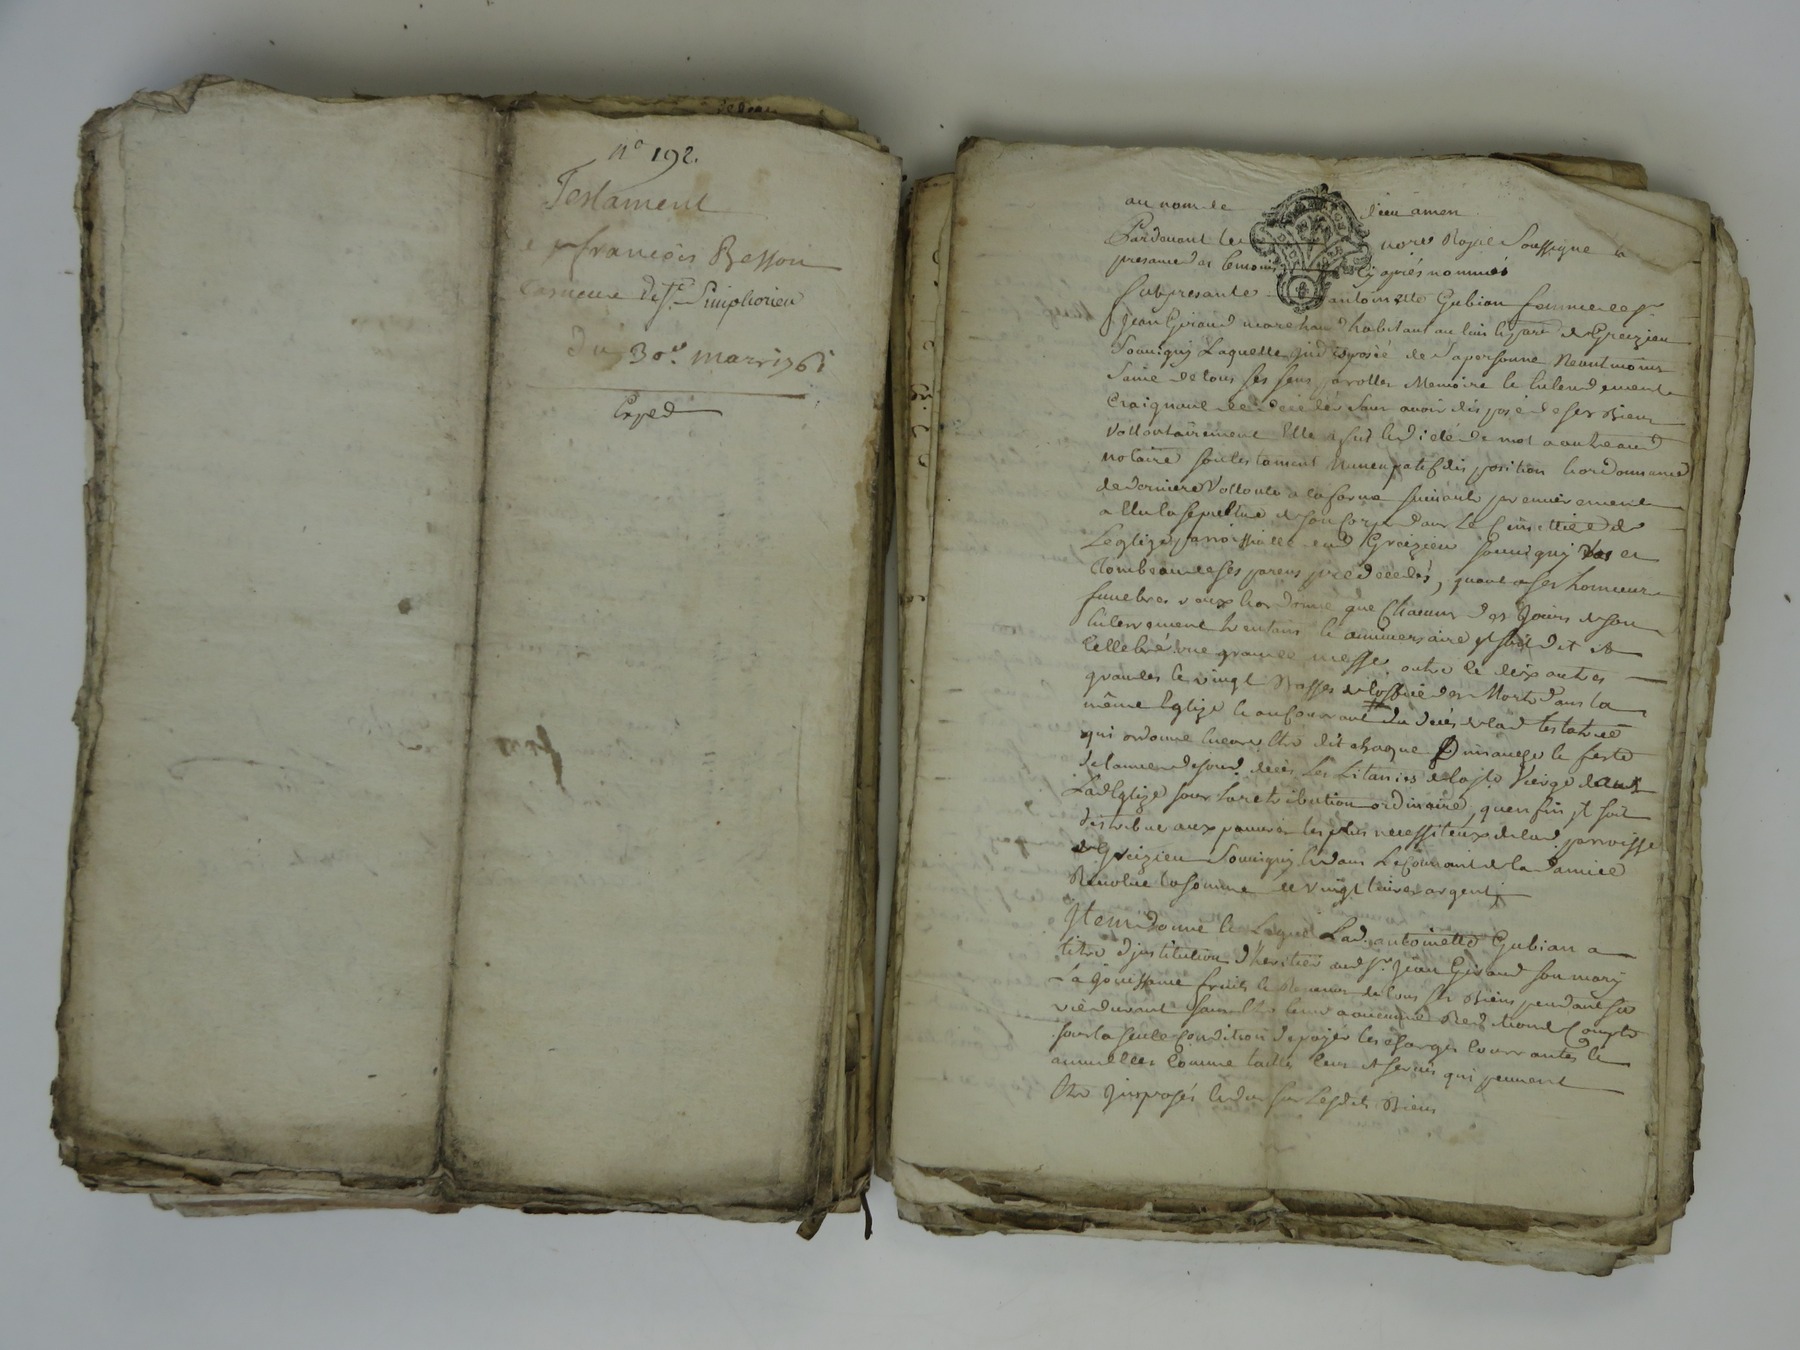 n° 192.
Testament
françois Besson
de St. Simphorien
du 30e. mars 1761
Exped
au nom de dieu amen
Pardevant le nore Royal Soussigné &
presance des temoins cy aprés nommés
fut presante antoinette Gubian femme de sr.
Jean Giraud marchand habitant au lieu & par. de Greizieu
Souvigny Laquelle indisposée de sa personne Neantmoins
Saine de tous ses sens parolles Memoire & entendement
Craignant de deceder sans avoir disposé de ses Biens
Vollontairement Elle a fait & dicté de mot a autre aud
notaire son testament nuncupatif disposition & ordonnance
de derniere Vollonté a la forme suivante premierement
a Elu la sepulture de son Corps dans Le Cimettiere de
L'eglize parroissialle dud Greizieu Souvigny & en
Tombeau de ses parens predecedés, quant a ses honneurs
funebres veux & ordonne que Chacun des Jours de son
Enterrement trentain & anniversaire yl soit dit &
Cellebré une grande messe, outre & dix autres
grandes & vingt Basses de l'office des Morts dans la
même Eglize & au Courrant du decés de lad testatrice
qui ordonne encore Etre dit chaque Dimanche & feste
de l'année de sond. decès Les Litanies de la ste Vierge dans
Lad Eglize sous la retribution ordinaire, qu'en fin yl soit
distribué aux pauvres les plus necessiteux de lad. parroisse
de Greizieu Souvigny & dans Le Courrant de lad année
Revolue la somme de vingt livres argent;
Item donne & Legue Lad. antoinette Gubian a
titre d'jnstitution d'heritier aud Sr. Jean Giraud son mary
La Jouissance fruits & Revenus de tous ses Biens pendant sa
vie durant sans Etre tenu a aucune Reddition de Compte
sous la seule Condition de payér les charges Courrantes &
annuelles Comme tailles Cens & servis qui peuvent
Etre jmposés & dus sur Lesdits Biens